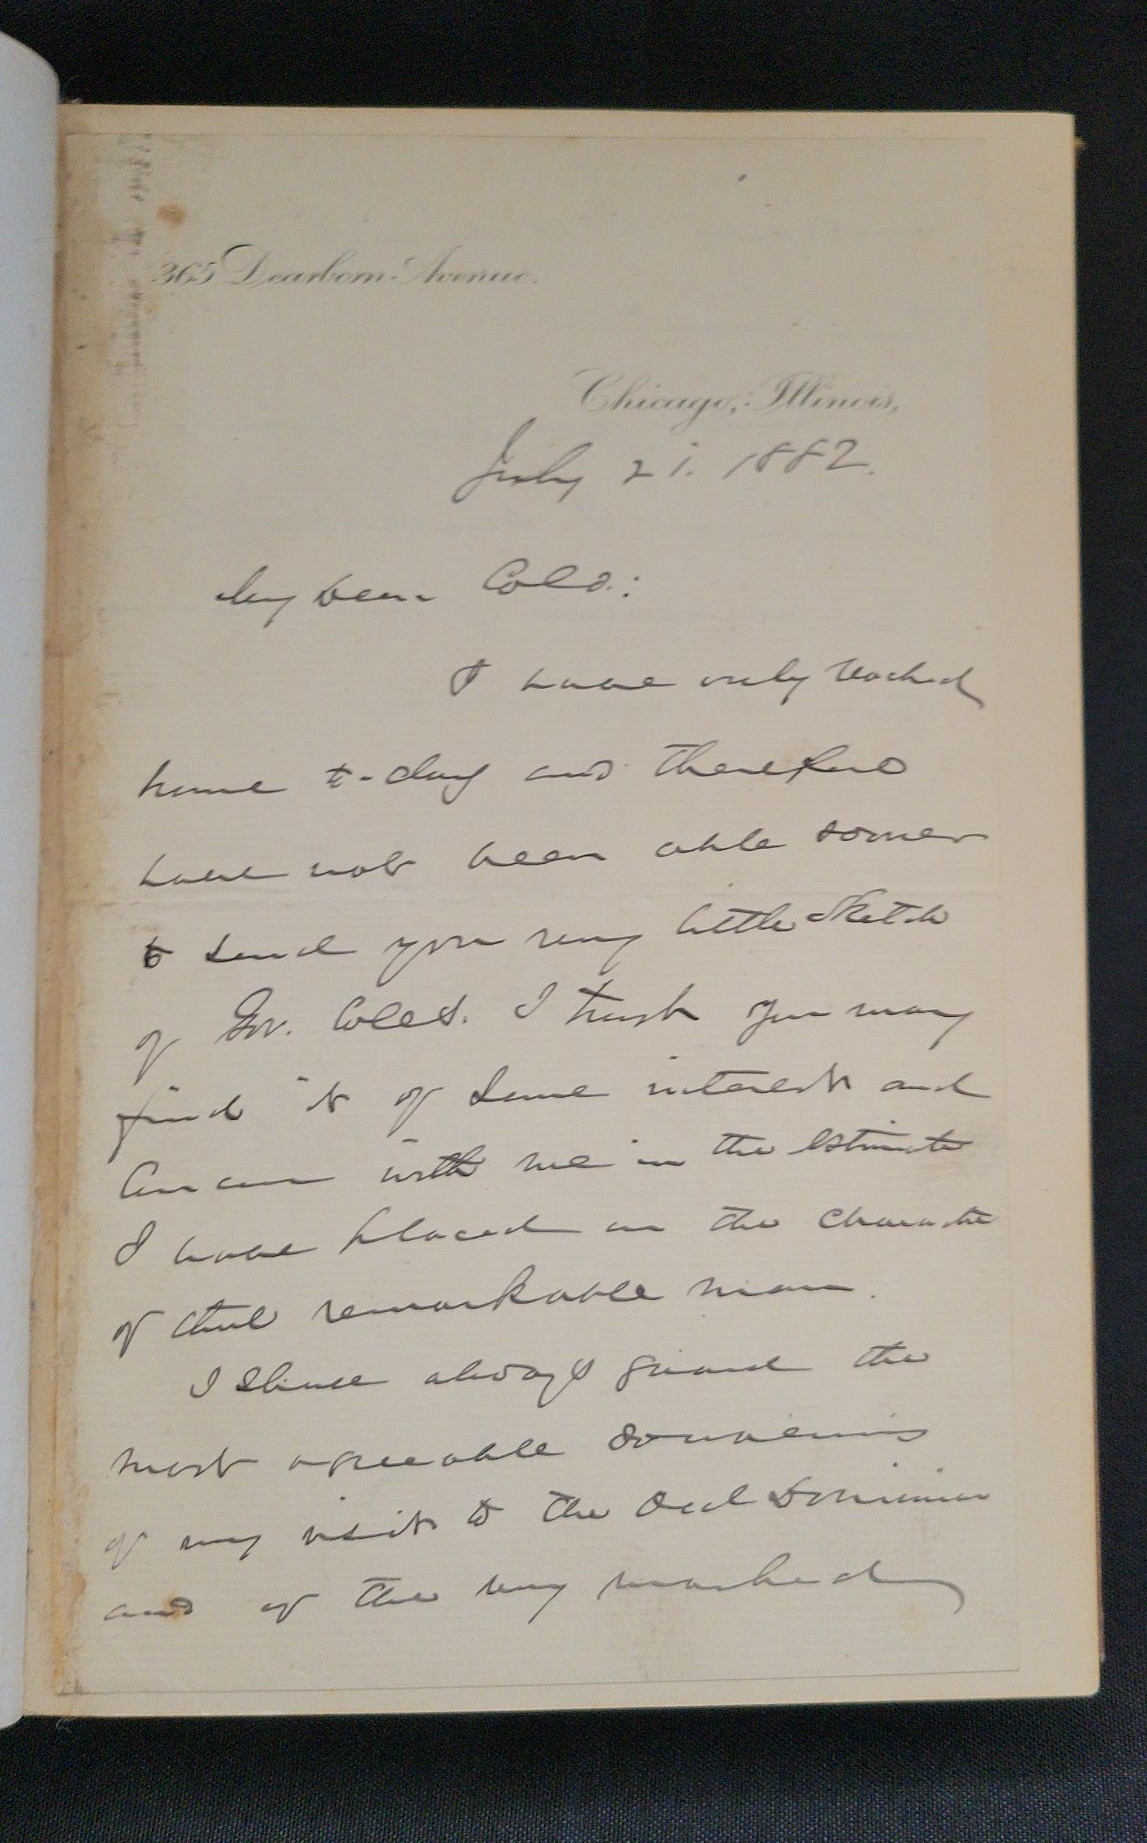 365 Dearborn Avenue.
Chicago, Illinois,
July 21. 1882.
My Dear Colo.:
I have only reached
home to-day and therefore
have not been able sooner
to send you my little sketch
of Gov. Coles. I trust you may
find it of some interest and
concur with me in the estimate
I have placed on the character
of that remarkable man.
I shall always guard the
most agreeable souvenirs
of my visit to the Old Dominion
and of the very marked